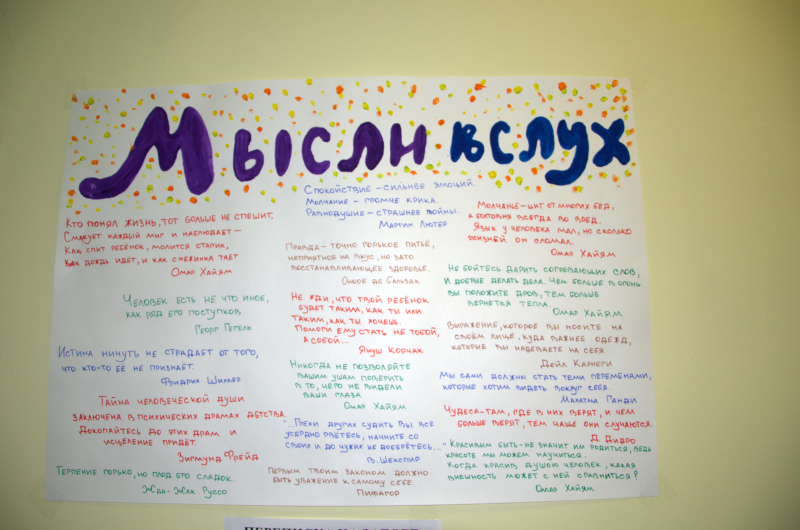 Мысли вслух
Спокойствие – сильнее эмоций.
Молчание – громче крика.
Равнодушие – страшнее войны.
Мартин Лютер
Кто понял жизнь, тот больше не спешит,
Смакует каждый миг и наблюдает –
Как спит ребёнок, молится старик,
Как дождь идёт, и как снежинка тает
Омар Хайям
Человек есть не что иное,
как ряд его поступков
Георг Гегель
Истина ничуть не страдает от того,
что кто-то её не признает.
Фридрих Шиллер
Тайна человеческой души
заключена в психических драмах детства.
Докопайтесь до этих драм и
исцеление придёт.
Зигмунд Фрейд
Терпение горько, но плод его сладок.
Жан-Жак Руссо
Правда – точно горькое питьё,
неприятное на вкус, но зато
восстанавливающее здоровье.
Оноре де Бальзак
Не жди, что твой ребёнок
будет таким, как ты или
таким, как ты хочешь.
Помоги ему стать не тобой,
а собой...
Януш Корчак
Никогда не позволяйте
вашим ушам поверить
в то, чего не видели
ваши глаза
Омар Хайям
"...Грехи других судить Вы все
усердно рвётесь, начните со
своих и до чужих не доберётесь..."
В. Шекспир
Первым твоим законом должно
быть уважение к самому себе.
Пифагор
Молчанье – щит от многих бед,
а болтовня всегда во вред.
Язык у человека мал, но сколько
жизней он сломал.
Омар Хайям
Не бойтесь дарить согревающих слов,
И добрые делать дела. Чем больше в огонь
вы положите дров, тем больше
вернётся тепла.
Омар Хайям
Выражение, которое вы носите на
своём лице, куда важнее одежд,
которые вы надеваете на себя
Дейл Карнеги
Мы сами должны стать теми переменами,
которые хотим видеть вокруг себя.
Махатма Ганди
Чудеса – там, где в них верят, и чем
больше верят, тем чаще они случаются.
Д. Дидро
Красивым быть – не значит им родиться, ведь
красоте мы можем научиться.
Когда красив душою человек, какая
внешность может с ней сравниться?
Омар Хайям